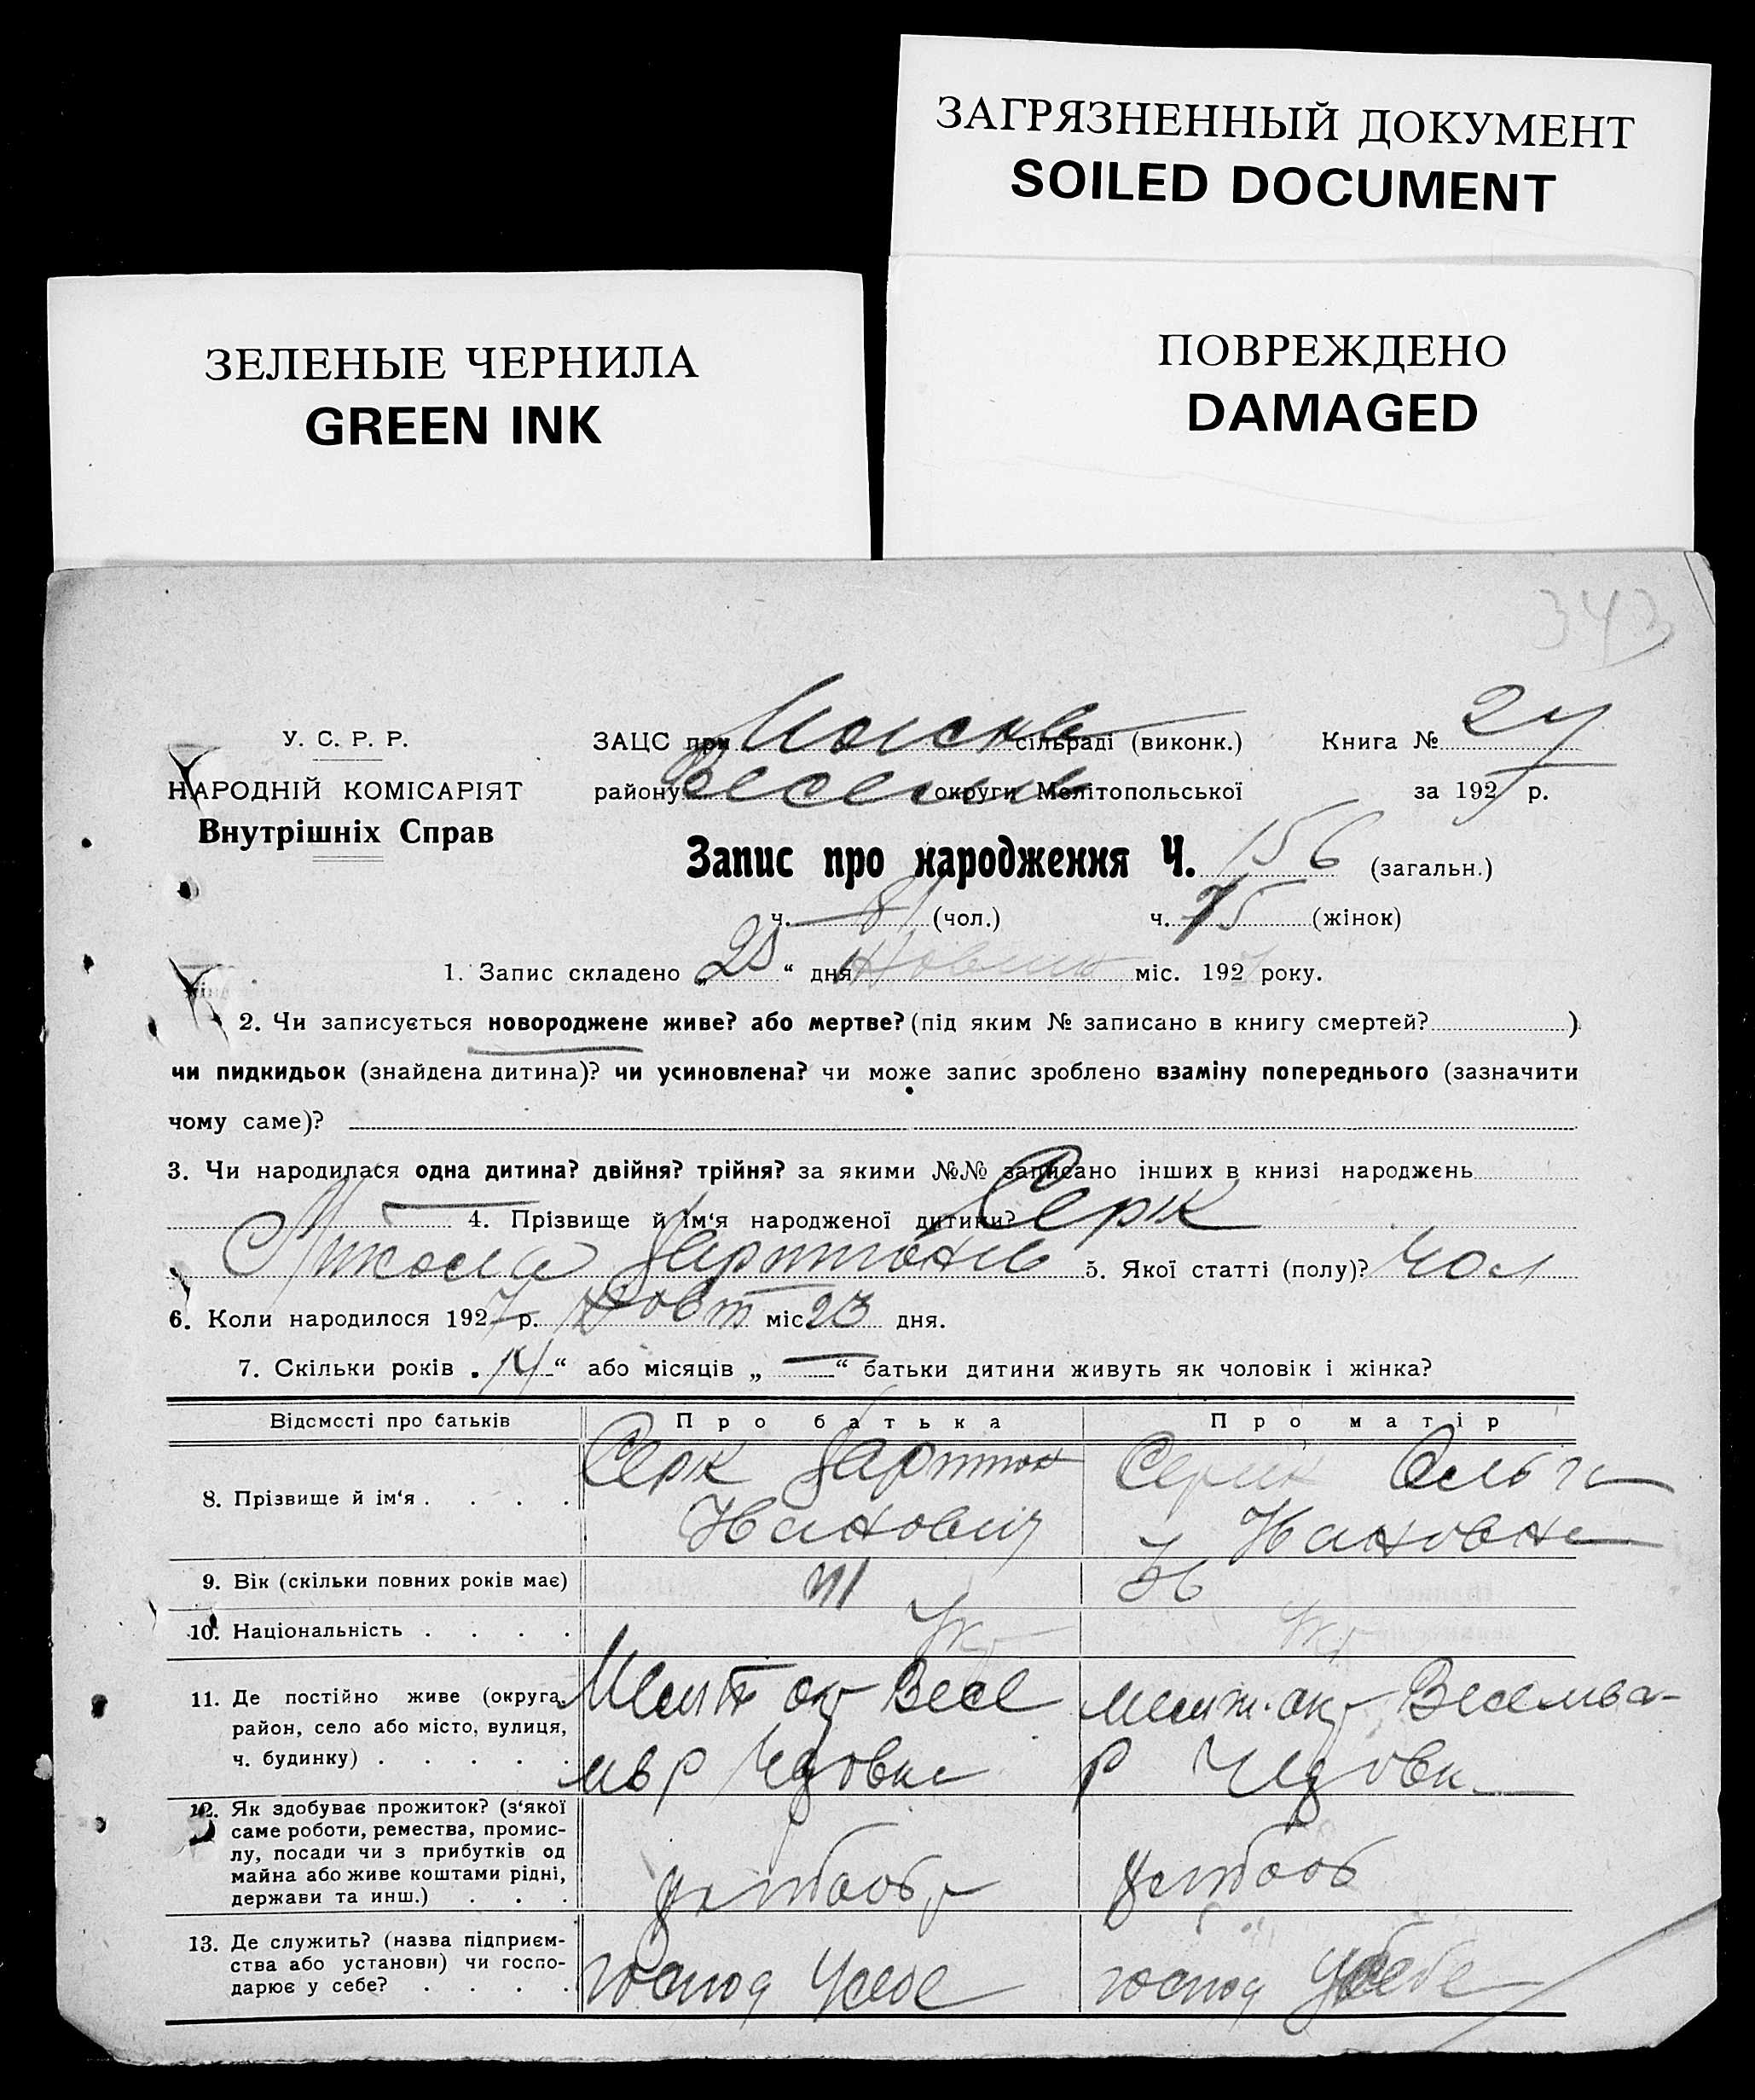 ЗАГРЯЗНЕННЫЙ ДОКУМЕНТ
SOILED DOCUMENT
ЗЕЛЕНЫЕ ЧЕРНИЛА
GREEN INK
ПОВРЕЖДЕНО
DAMAGED
343
У. С. Р. Р.
НАРОДНІЙ КОМІСАРІЯТ
Внутрішніх Справ
ЗАЦС при сільраді (виконк.) Книга № 24
району Веселів округи Мелітопольської за 1927 р.
Запис про народження Ч. 156 (загальн.)
ч. 81 (чол.) ч. 75 (жінок)
1. Запис складено „ “ дня міс. 192 року.
2. Чи записується новороджене живе? або мертве? (під яким № записано в книгу смертей? )
чи пидкидьок (знайдена дитина)? чи усиновлена? чи може запис зроблено взаміну попереднього (зазначити
чому саме)?
3. Чи народилася одна дитина? двійня? трійня? за якими №№ записано інших в книзі народжень
4. Прізвище й ім‘я народженої дитини? Серк
Микола 5. Якої статті (полу)? Чол
6. Коли народилося 1927 р. Жовт міс 23 дня.
7. Скільки років „14“ або місяців „ — “ батьки дитини живуть як чоловік і жінка?
Відомості про батьків Про батька Про матір
8. Прізвище й ім‘я . . . . Серк Серик Ольга
Иванович Ивановна
9. Вік (скільки повних років має) 41 36
10. Національність . . . . Укр Укр
11. Де постійно живе (округа, Меліт окр Весе Меліт. окр Веселів
район, село або місто, вулиця,
ч. будинку) . . . . . р р
12. Як здобуває прожиток? (з‘якої
саме роботи, ремества, промис-
лу, посади чи з прибутків од
майна або живе коштами рідні,
держави та инш.) . . . хлібооб хлібооб
13. Де служить? (назва підприєм-
ства або установи) чи госпо-
дарює у себе? . . . . господ Усебе господ Усебе